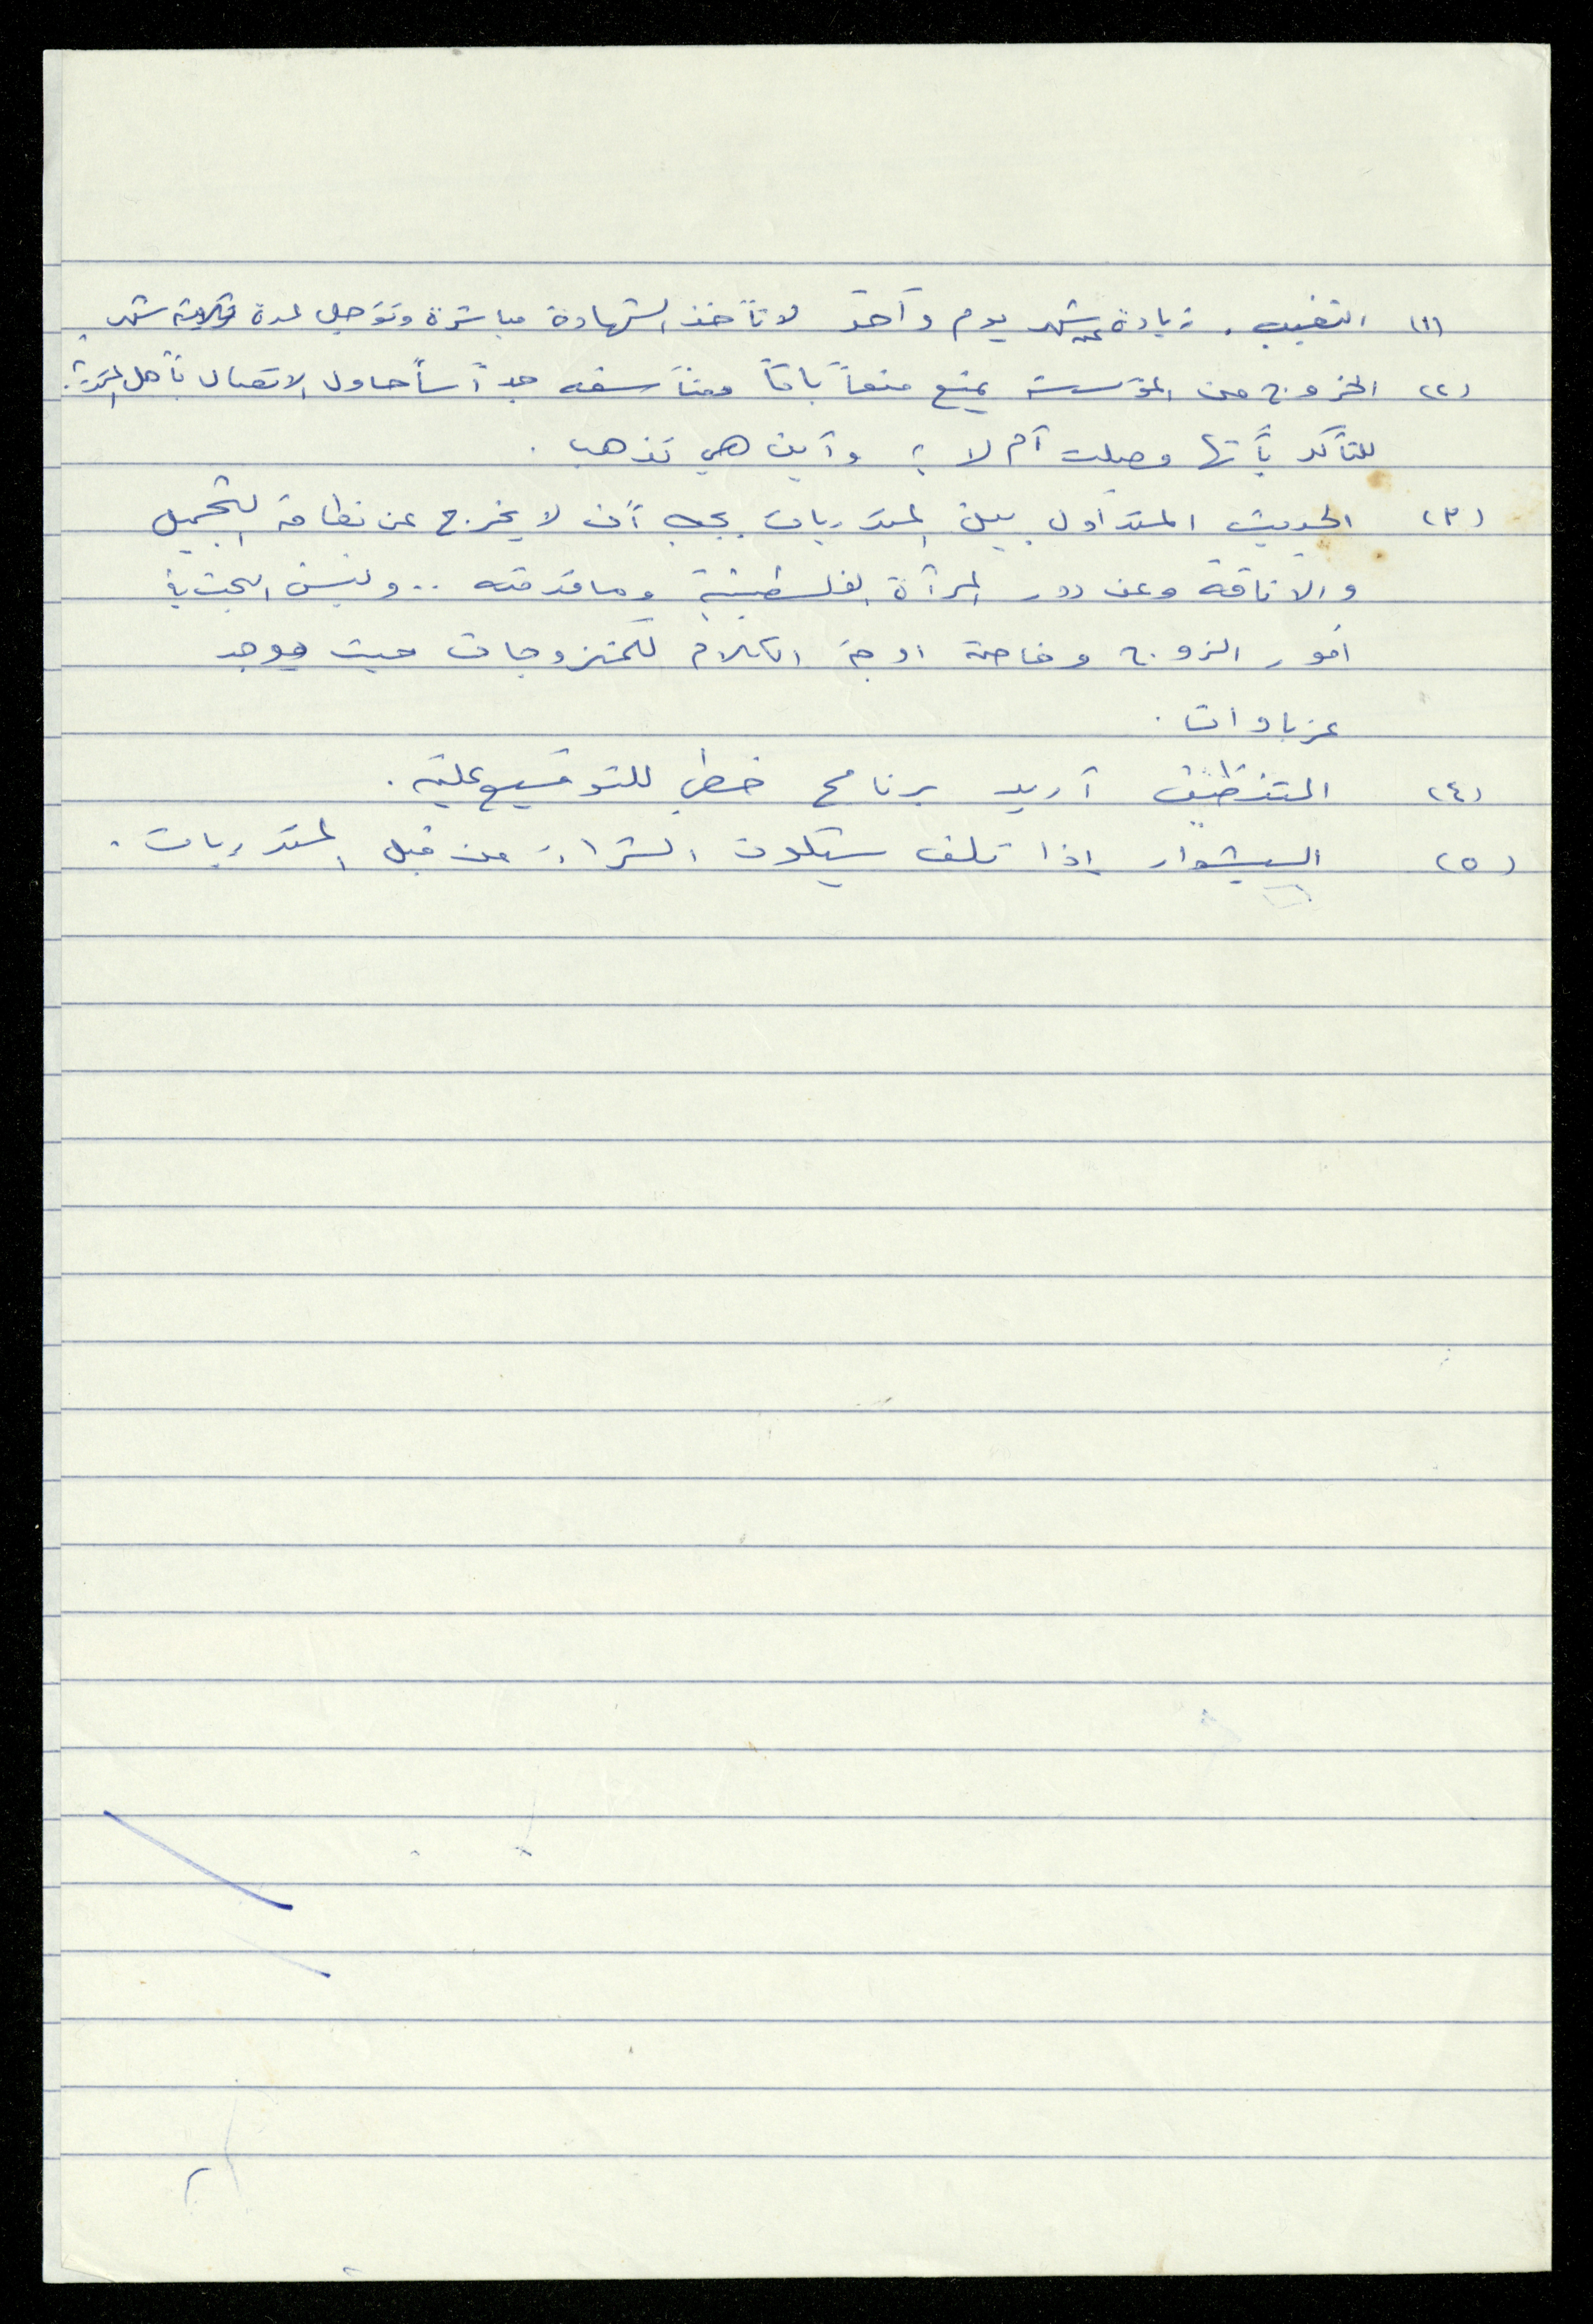 (١) التغيب . زيادة عن شهر يوم وآحد لا تآخذ الشهادة مباشرة وتؤجل لمدة ثلاثة شهر .
(٢) الخروج من المؤسسة يمنع منعاً باتاً ومتآسفه جداً سآحاول الاتصال بآهل المتدربة
للتآكد بآنها وصلت آم لا ؟ وآين هي تذهب .
(٣) الحديث المتداول بين المتدربات يجب آن لا يخرج عن نطاقه التجميل
والاناقة وعن دور المرآة الفلسطينية وما قدمته .. وليس البحث في
آمور الزوج وخاصة اوجه الكلام للمتزوجات حيث يوجد
عزباوات .
(٤) التنظيف آريد برنامج خطي للتوقيع عليه .
(٥) السيشوار إذا تلف سيكون الشراء من قبل المتدربات .